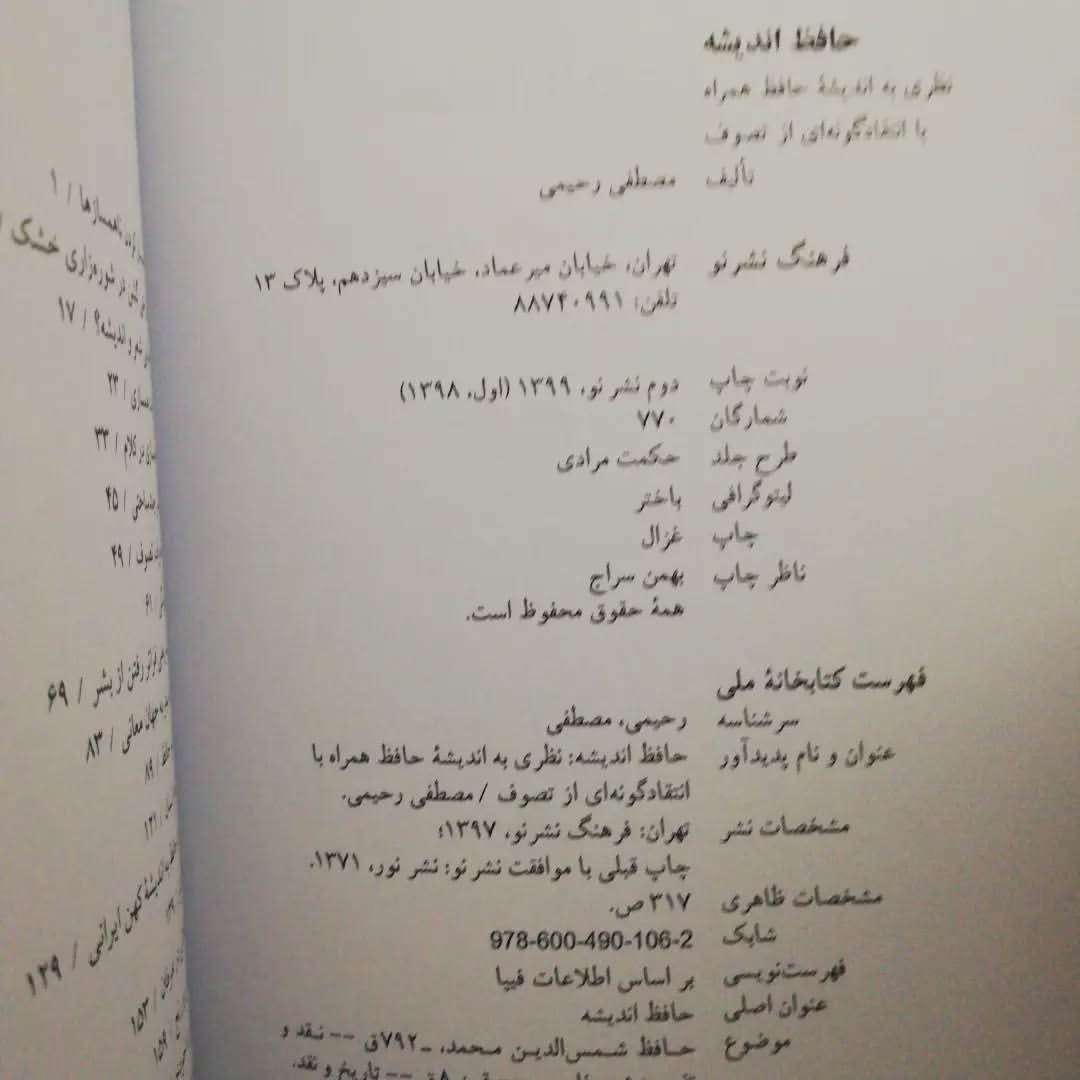 حافظ اندیشه
نظری به اندیشهٔ حافظ همراه
با انتقادگونه‌ای از تصوف
تألیف مصطفی رحیمی
فرهنگ نشر نو تهران، خیابان میرعماد، خیابان سیزدهم، پلاک ۱۳
تلفن: ۸۸۷۴۰۹۹۱
نوبت چاپ دوم نشر نو، ۱۳۹۹ (اول، ۱۳۹۸)
شمارگان ۷۷۰
طرح جلد حکمت مرادی
لیتوگرافی باختر
چاپ غزال
ناظر چاپ بهمن سراج
همهٔ حقوق محفوظ است.
فهرست کتابخانهٔ ملی
سرشناسه رحیمی، مصطفی
عنوان و نام پدیدآور حافظ اندیشه: نظری به اندیشهٔ حافظ همراه با
انتقادگونه‌ای از تصوف / مصطفی رحیمی.
مشخصات نشر تهران: فرهنگ نشر نو، ۱۳۹۷؛
چاپ قبلی با موافقت نشر نو: نشر نور، ۱۳۷۱.
مشخصات ظاهری ۳۱۷ ص.
شابک 978-600-490-106-2
فهرست‌نویسی بر اساس اطلاعات فیپا
عنوان اصلی حافظ اندیشه
موضوع حافظ شمس‌الدین محمد، ـ۷۹۲ق -- نقد و
ق -- تاریخ و نقد.
ناهمسازها / ۱
در شوره‌زاری خشک /
و اندیشه؟ / ۱۷
/ ۲۳
در کلام / ۳۳
/ ۴۵
تصوف / ۴۹
/ ۶۱
فراتر رفتن از بشر / ۶۹
جهان معانی / ۸۳
/ ۸۹
/ ۱۲۱
اندیشهٔ کهن ایرانی / ۱۲۹
عرفان / ۱۵۳
۱۵۹